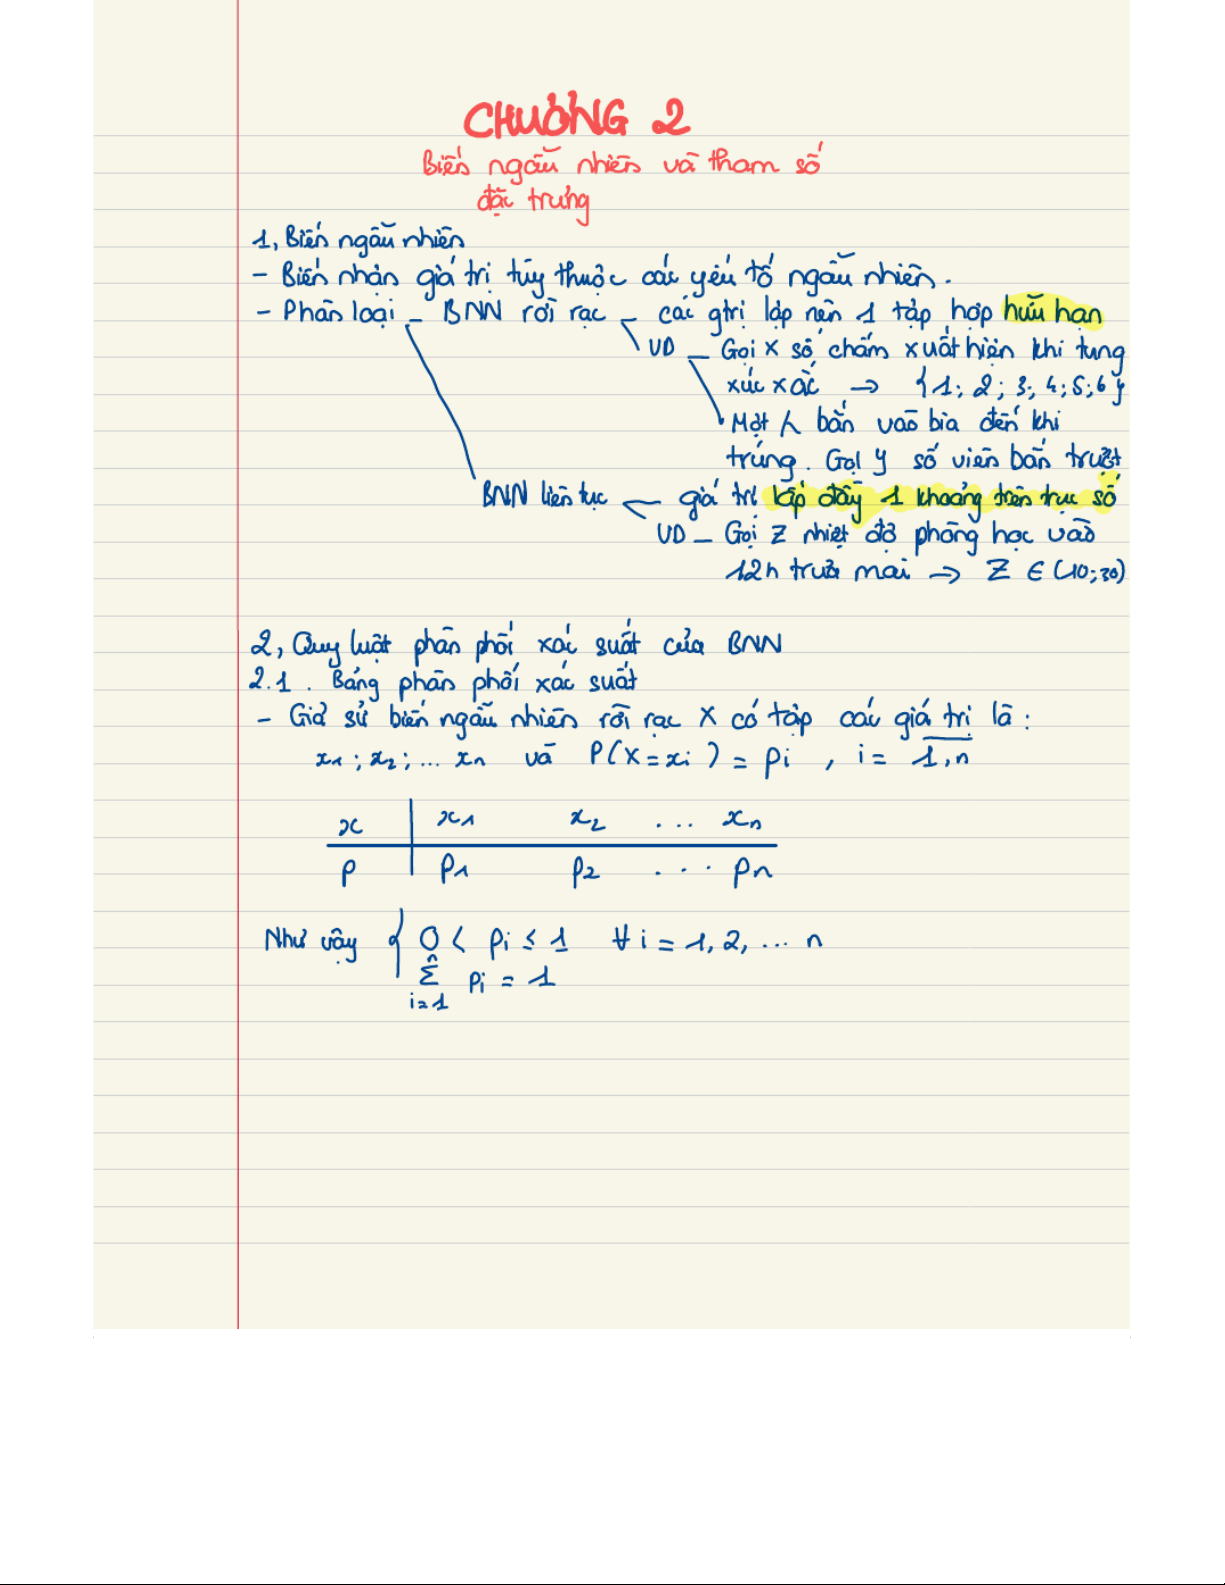 CHƯƠNG 2
Biến ngẫu nhiên và tham số
đặc trưng
1, Biến ngẫu nhiên
- Biến nhận giá trị tùy thuộc các yếu tố ngẫu nhiên.
- Phân loại - BNN rời rạc - các gtrị lập nên 1 tập hợp hữu hạn
VD - Gọi X số chấm xuất hiện khi tung
xúc xắc → {1; 2; 3; 4; 5; 6}
Một bắn vào bia đến khi
trúng. Gọi Y số viên bắn trượt
BNN liên tục - giá trị lấp đầy 1 khoảng trên trục số
VD - Gọi Z nhiệt độ phòng học vào
12h trưa mai → Z ∈ (10; 30)
2, Quy luật phân phối xác suất của BNN
2.1. Bảng phân phối xác suất
- Giả sử biến ngẫu nhiên rời rạc X có tập các giá trị là:
x₁; x₂; ... xₙ và P(X = xᵢ) = pᵢ, i = 1,n
x | x₁ x₂ ... xₙ
P | P₁ P₂ ... Pₙ
Như vậy { 0 < pᵢ ≤ 1 ∀ i = 1, 2, ... n
n
Σ pᵢ = 1
i=1